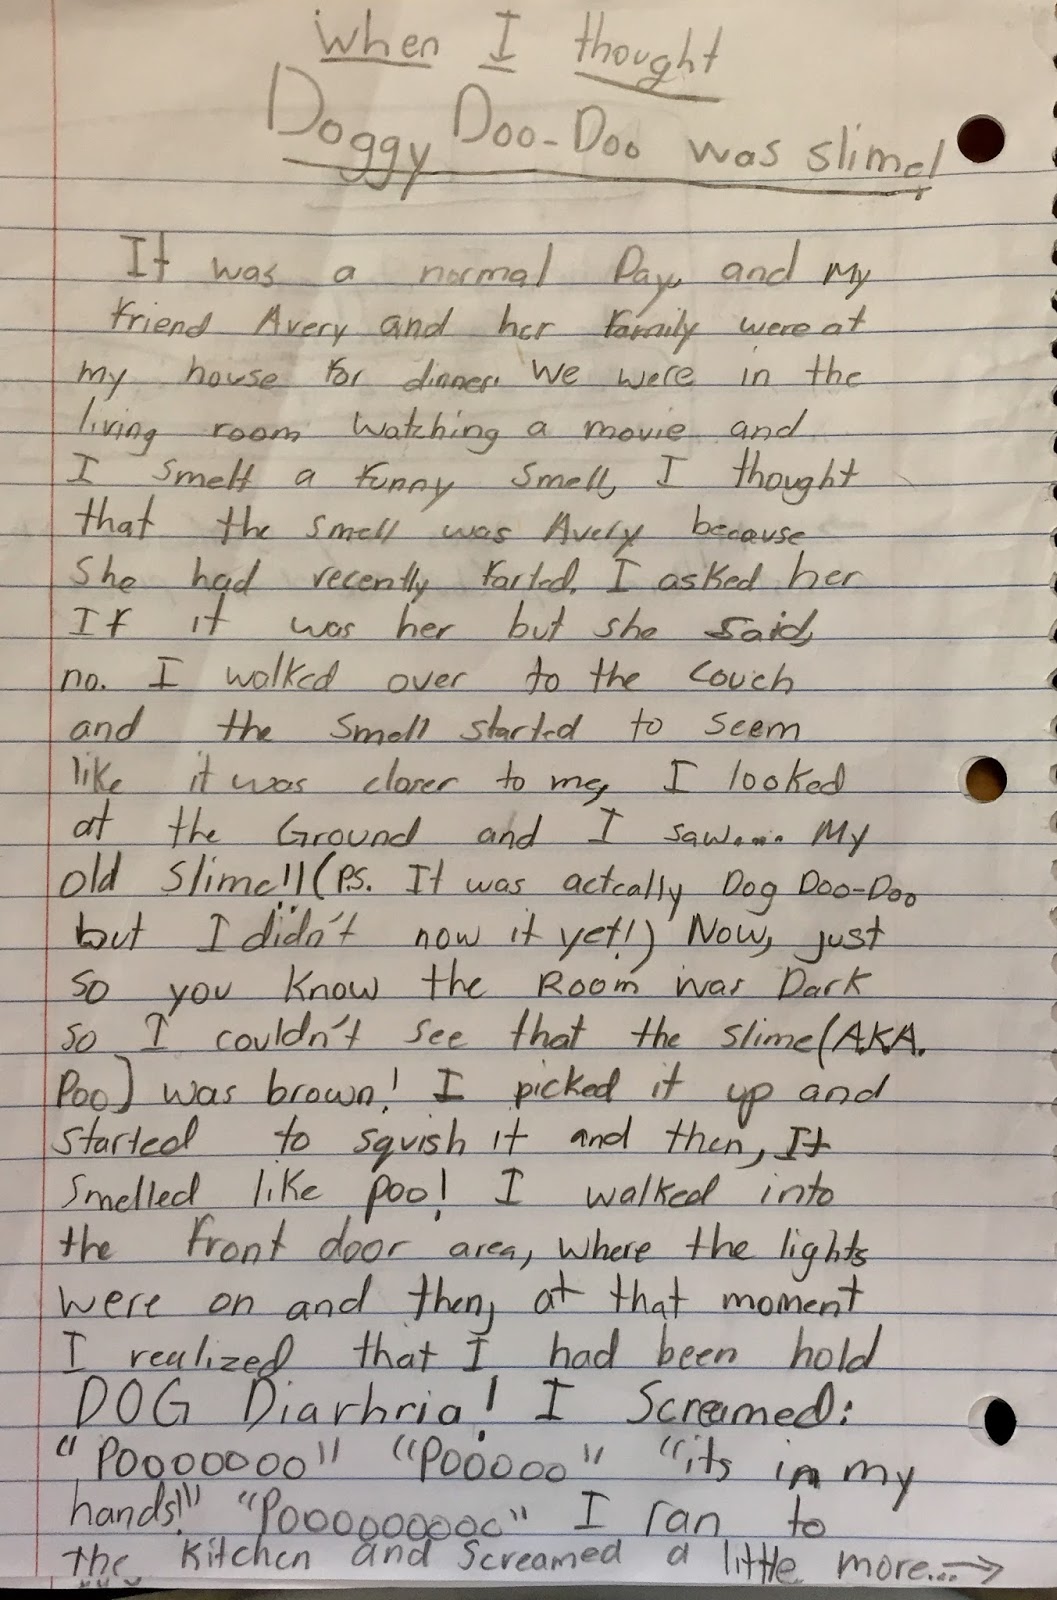 When I thought
Doggy Doo-Doo was slime!
It was a normal Day, and My
friend Avery and her family were at
my house for dinner. We were in the
living room Watching a movie and
I smelt a funny smell, I thought
that the smell was Avery because
She had recently farted. I asked her
If it was her but she said,
no. I walked over to the couch
and the smell started to seem
like it was closer to me, I looked
at the Ground and I saw.... My
old Slime!!(P.S. It was actcally Dog Doo-Doo
but I didn't now it yet!) Now, just
so you know the Room was Dark
so I couldn't see that the slime(A.K.A.
Poo) was brown! I picked it up and
started to squish it and then, It
Smelled like poo! I walked into
the front door area, where the lights
were on and then, at that moment
I realized that I had been hold
DOG Diarhria! I Screamed:
"Pooooooo" "Pooooo" "its in my
hands!" "Pooooooooo" I ran to
the Kitchen and Screamed a little more...→